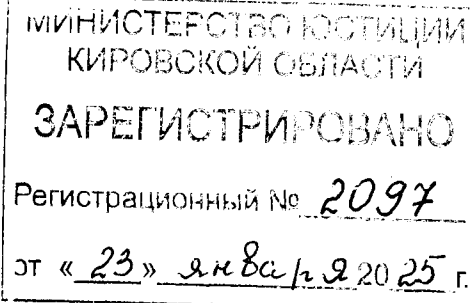 МИНИСТЕРСТВО ЮСТИЦИИ
КИРОВСКОЙ ОБЛАСТИ
ЗАРЕГИСТРИРОВАНО
Регистрационный № 2097
от « 23 » января 20 25 г.